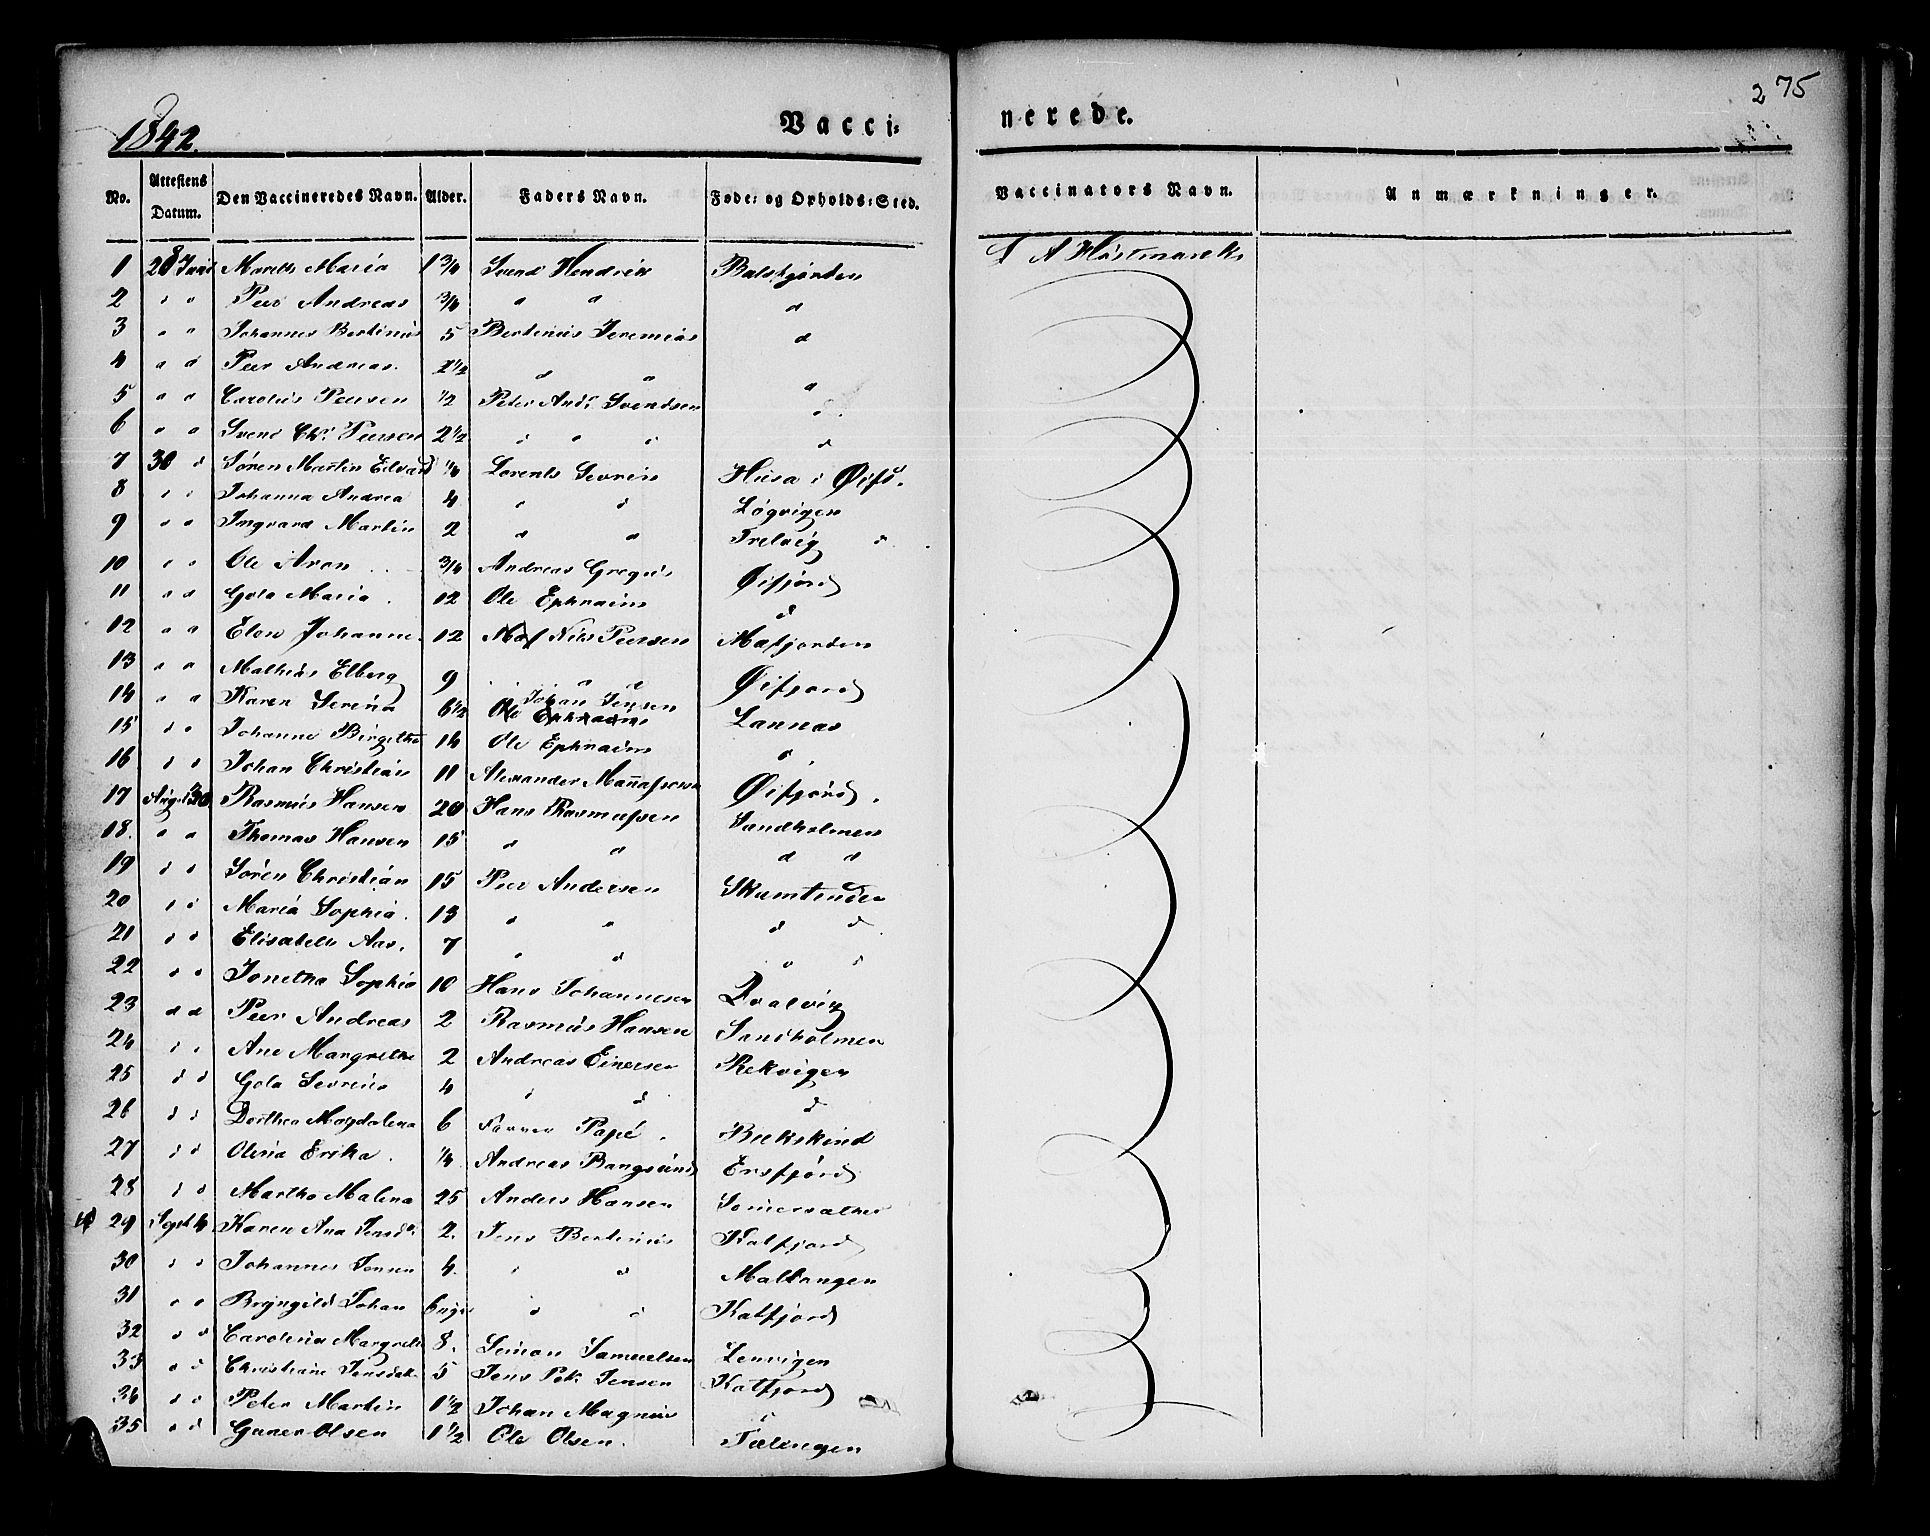 275
1842.
Vacci-
nerede.
No. Attestens Datum. Den Vaccineredes Navn. Alder. Faders Navn. Føde- og Opholds-Sted. Vaccinators Navn. Anmærkninger.
1 28 Maria 1 3/4 Svend Hendrik Balsfjorden A Høstmarck
2 " " Peer Andreas 3/4 " " "
3 " " Johannes Bertinus 5 Bertinus Jeremias "
4 " " Peer Andreas. 2 1/2 " " "
5 " " Carolus Peersen 1/2 Peter Andr. Svendsen "
6 " " Svend Chr. Peersen 2 1/2 " " " "
7 30 " Søren Martin Edvard 1/4 Lorents Sevrin Husa i Øifd.
8 " " Johanna Andrea 4 " " Løgvigen
9 " " Ingvard Martin 2 " " Trelvig "
10 " " Ole Aron 3/4 Andreas Gregus Øifjord
11 " " Golo Maria. 12 Ole Ephraim "
12 " " Elen Johanne. 12 Nils Peersen Mafjorden
13 " " Mathias Elberg 9 " " " Øifjord
14 " " Karen Serina 6 1/2 Johan Jensen Lannas
15 " " Johanne Birgitha 14 Ole Ephraim "
16 " " Johan Christian 11 Alexander Manassesen Øifjord.
17 August 30 Rasmus Hansen 20 Hans Rasmussen Sandholmen
18. " " Thomas Hansen 15 " " " "
19 " " Søren Christian 15 Peer Andersen Skamtinden
20 " " Maria Sophia. 13 " " " "
21 " " Elisabeth Aas. 7 " " " "
22 " " Jonetha Sophia 10 Hans Johannesen Qvalvig
23 " " Peer Andreas 2 Rasmus Hansen Sandholmen
24 " " Ane Margrethe 2 Andreas Einersen Rekvigen
25 " " Golo Sevrine 4 " " "
26 " " Dorthea Magdalena 6 Papé.
27 " " Olina Erika. 1/4 Andreas Bangsund Ersfjord
28 " " Martha Malena 25 Anders Hansen
29 Sept 4 Karen Ana Jensd. 2. Jens Bertinus Katfjord
30 " " Johannes Jensen 4. " " Malangen
31 " " Bryngild Johan " " Katfjord
32 " " Carolina Margrethe 8. Simon Samuelsen Lenvigen
33 " " Christiane Jensdat. 5 Jens Jensen Katfjord
34 " " Peter Martin 1 1/2 Johan Magnus "
35 " " Olsen 1 1/2 Ole Olsen. Tælingen